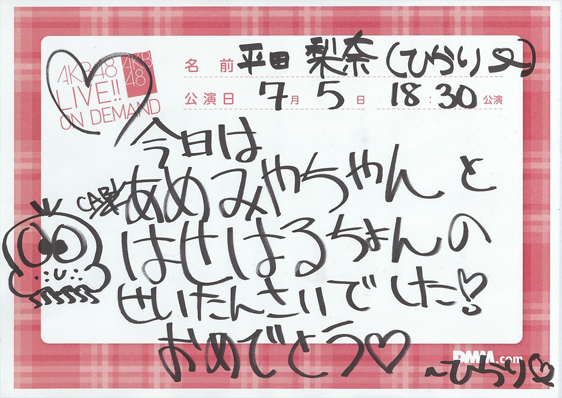 AKB48
LIVE!!
ON DEMAND
AKB
48
名前 平田 梨奈(ひかり
公演日 7月5日 18:30公演
今日は
あめみやちゃんと
はせはるちょんの
せいたんさいでした!
おめでとう♡
DMM.com
~ひらり♡